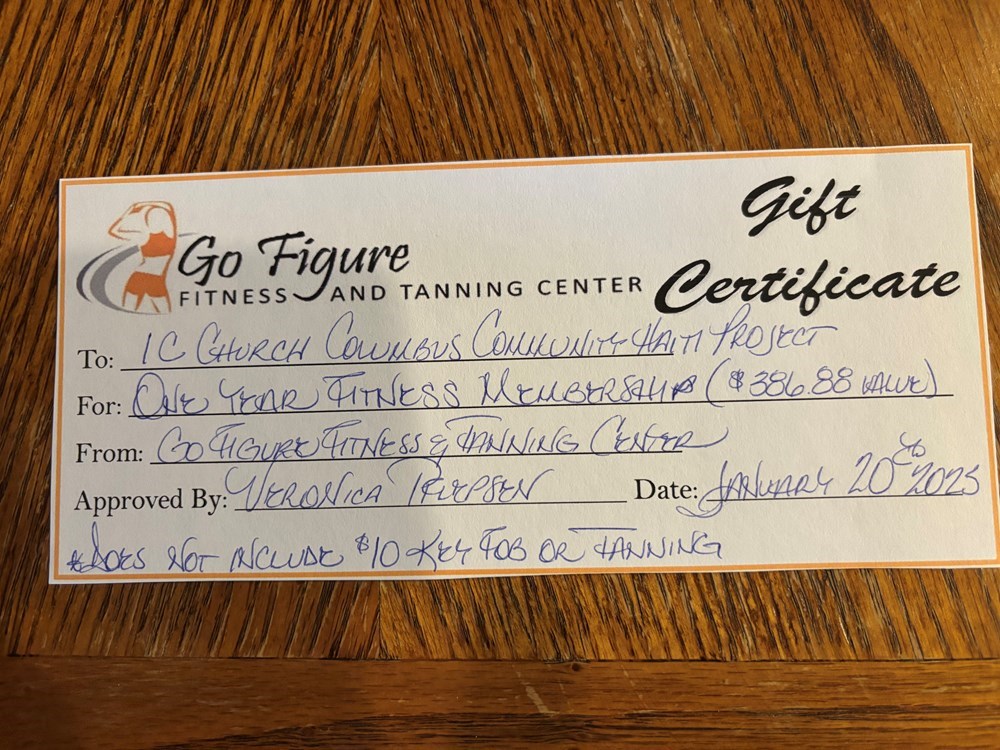 Gift
Certificate
Go Figure
FITNESS AND TANNING CENTER
To: IC CHURCH COLUMBUS COMMUNITY HAITI PROJECT
For: ONE YEAR FITNESS MEMBERSHIP ($386.88 VALUE)
From: GO FIGURE FITNESS & TANNING CENTER
Approved By: VERONICA Date: JANUARY 20th 2025
*DOES NOT INCLUDE $10 KEY FOB OR TANNING